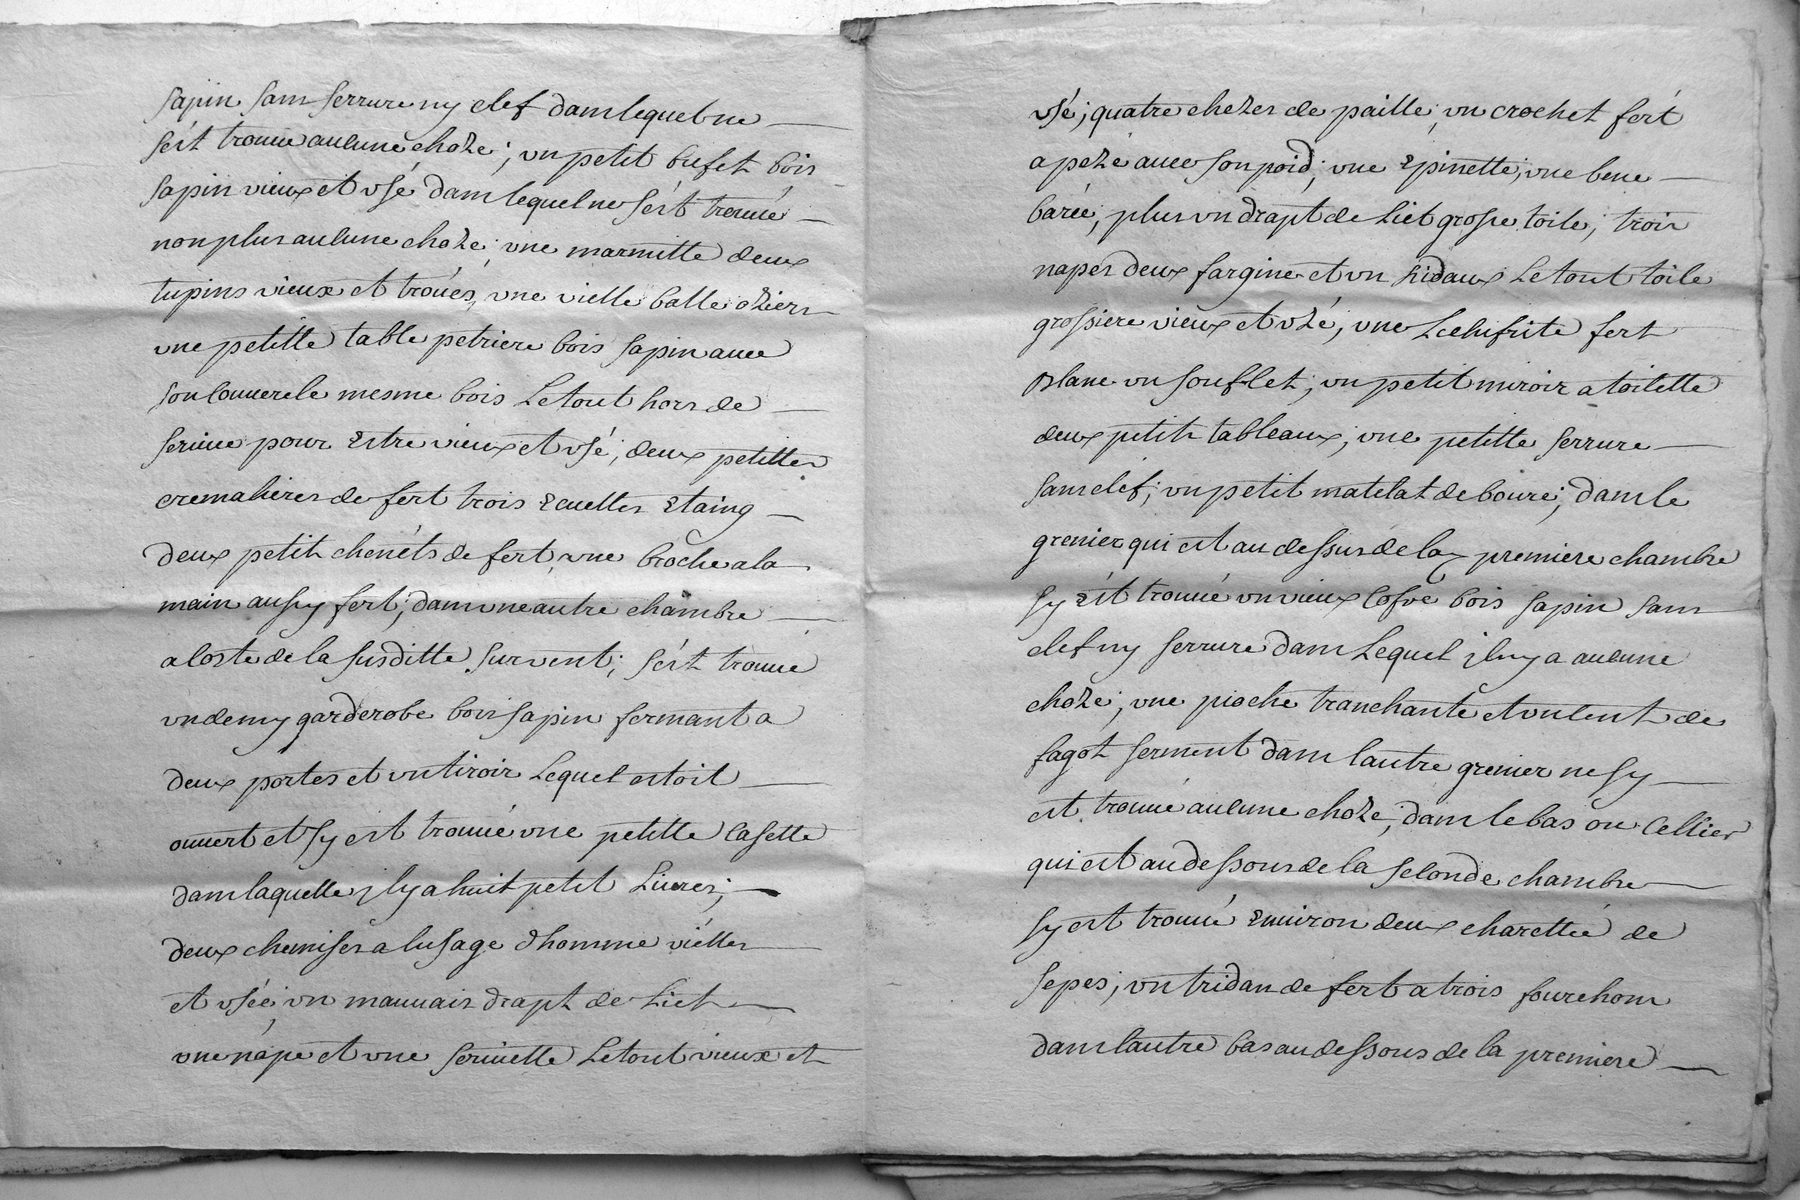 sapin sans serrure ny clef dans lequel ne
s'ést trouué aucune choze; vn petit bufet bois
sapin vieux et vsé dans lequel ne s'ést trouué
non plus aucune choze; vne marmitte deux
tupins vieux et troués, vne vielle balle oziers
vne petitte table petriere bois sapin auec
son couuercle mesme bois Le tout hors de
seruice pour Estre vieux et vsé; deux petittes
cremalieres de fert trois Ecuelles Etaing
deux petits chenéts de fert, vne bròche a la
main aussy fert; dans vne autre chambre
a coste de la susditte sur vent; s'ést trouué
vn demy garderobe bois sapin fermant a
deux portes et vn tiroir Lequel estoit
ouuert et s'y est trouué vne petitte Casette
dans laquelle jl y a huit petit Liures;
deux chemises a lusage d'homme viélles
et vséé; vn mauuais drapt de Lict
vne nape et vne seruiette Le tout vieux et
vsé; quatre chezes de paille, vn crochet fért
a pezé auec son poid; vne Epinette; vne bene
baréé; plus vn drapt de Lict grosse toile; trois
napes deux sargines et vn Ridaux Le tout toile
grossiere vieux et vzé; vne Lechifrite fert
Blanc vn souflet; vn petit miroir a toilette
deux petits tableaux; vne petitte serrure
sans clef; vn petit matelat de boure; dans le
grenier qui est au dessus de la premiere chambre
s'y ést trouué vn vieux Cofre bois sapin sans
clef ny serrure dans Lequel jl ny a aucune
choze; vne pioche tranchante et vn cent de
fagot serment dans l'autre grenier ne s'y
est trouué aucune choze; dans le bas ou Cellier
qui est au dessous de la seconde chambre
s'y est trouué Enuiron deux charettéé de
sepes; vn tridan de fert a trois fourchons
dans l'autre bas au dessous de la premiere